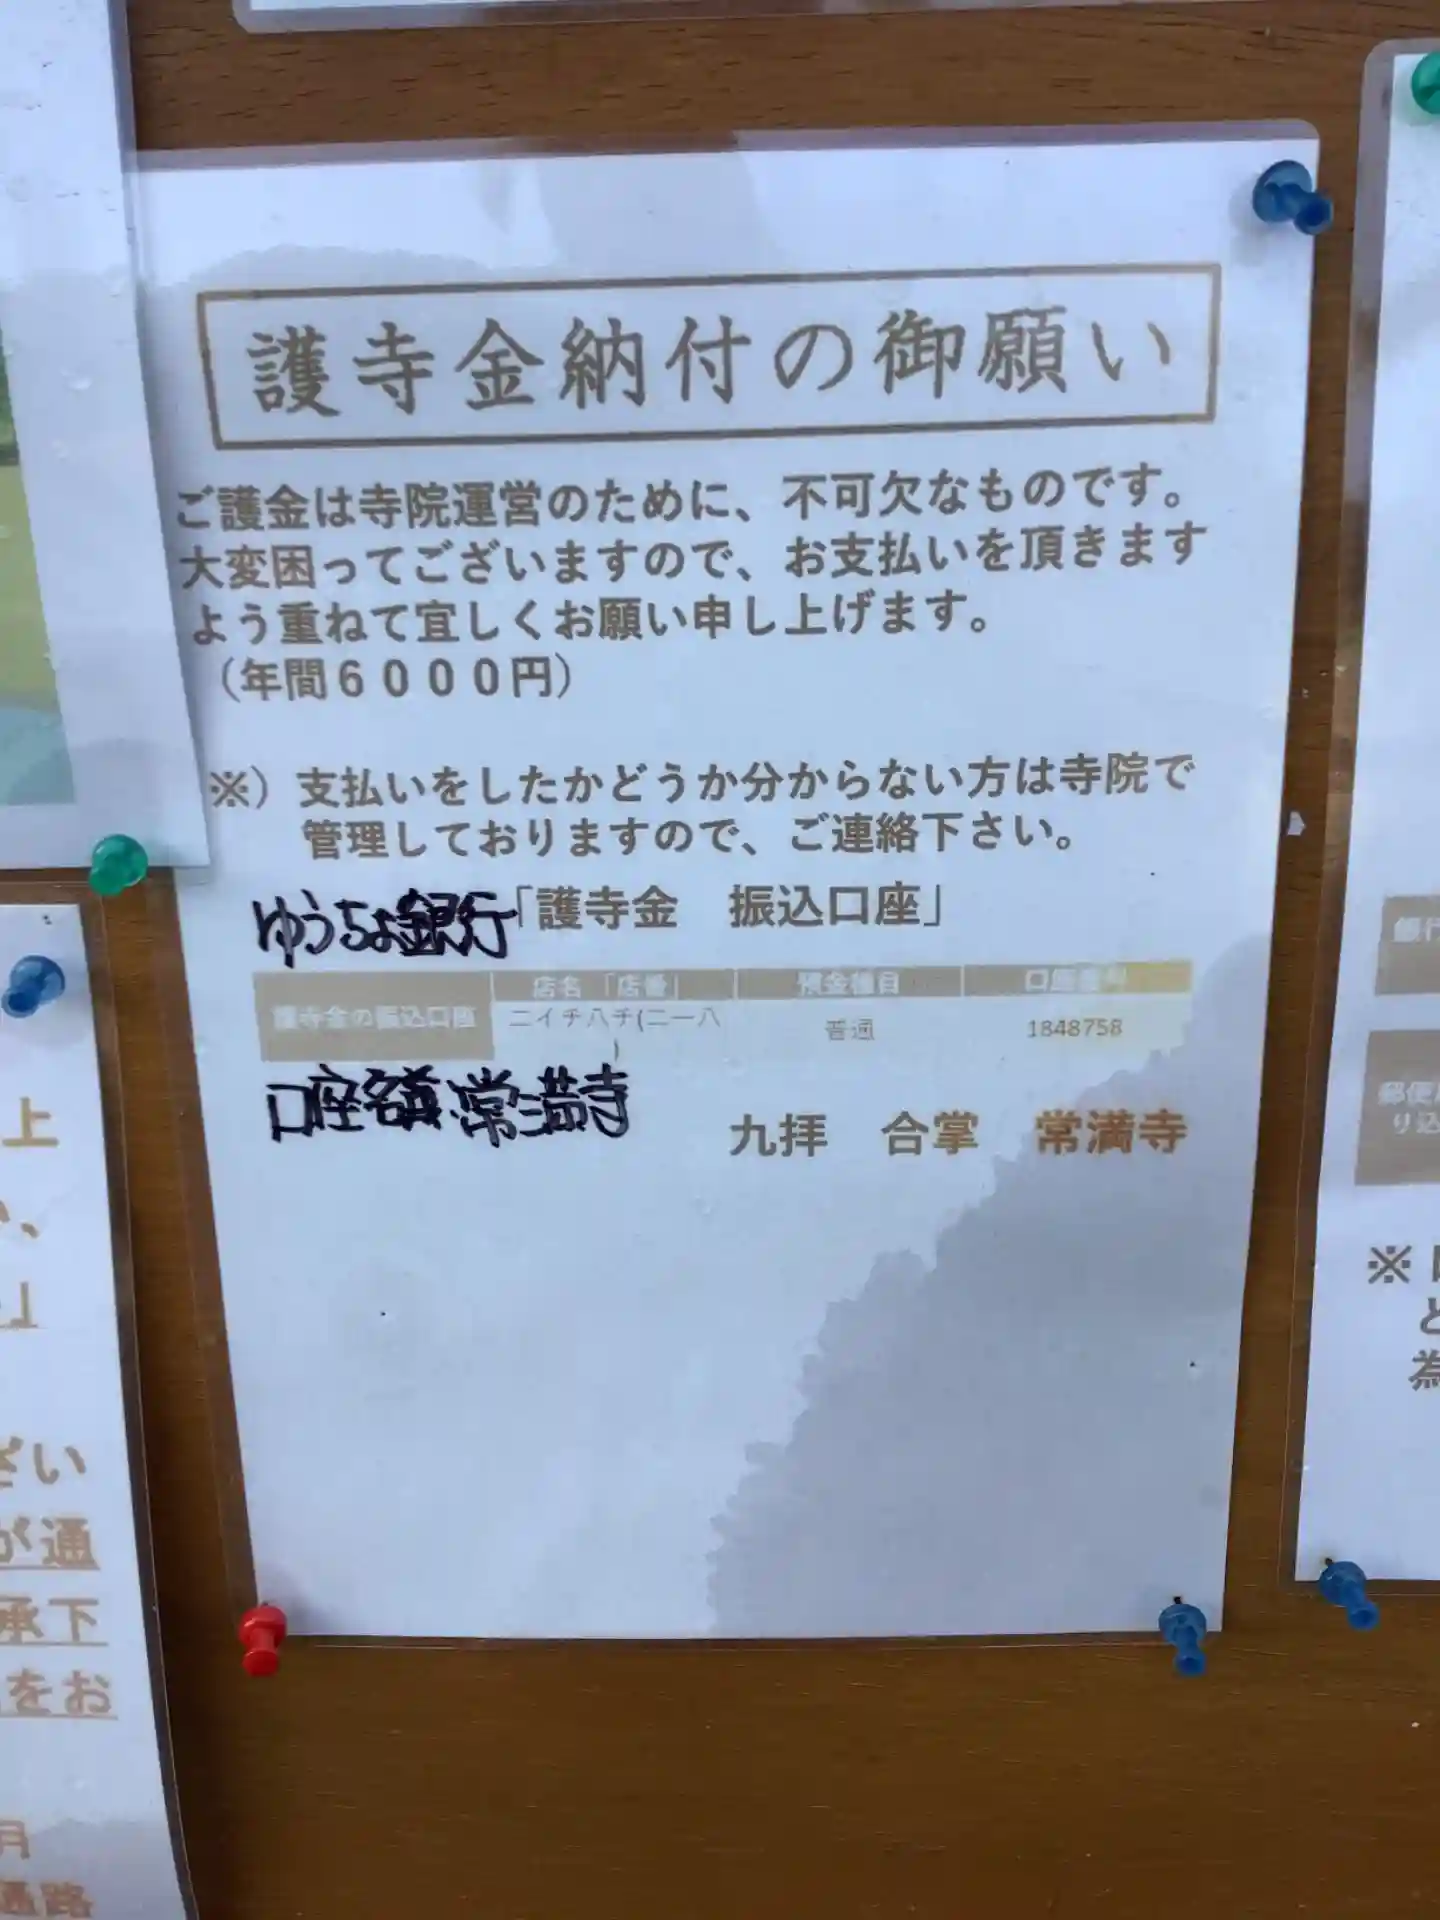 護寺金納付の御願い
ご護金は寺院運営のために、不可欠なものです。
大変困ってございますので、お支払いを頂きます
よう重ねて宜しくお願い申し上げます。
（年間６０００円）
※）支払いをしたかどうか分からない方は寺院で
管理しておりますので、ご連絡下さい。
ゆうちょ銀行「護寺金　振込口座」
店名「店番」 預金種目 口座番号
護寺金の振込口座 ニイチハチ(二一八) 普通 1848758
口座名義 常満寺
九拝　合掌　常満寺
上
、
」
ざい
が通
承下
をお
月
通路
銀行
郵便
り込
※
と
為